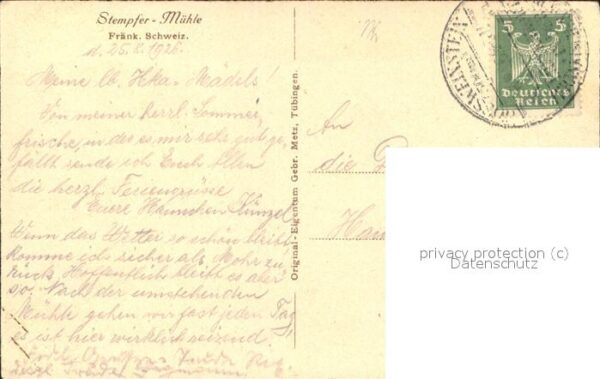 Stempfer-Mühle
Fränk. Schweiz.
d. 25.8.1926.
Meine lb. Hka-Mädels!
Von meiner herrl. Sommer,
frische, in der es mir sehr gut ge,
fällt sende ich Euch Allen
die herzl. Feriengrüsse
Euere Hannchen Künzel
Wenn das Wetter so schön bleibt
komme ich sicher als Mohr zu
rück. Hoffentlich bleibt es aber
so. Nach der umstehenden
Mühle gehen wir fast jeden Tag,
es ist hier wirklich reizend.
Original-Eigentum Gebr. Metz, Tübingen.
An
die
5 5
Deutsches
Reich
privacy protection (c)
Datenschutz